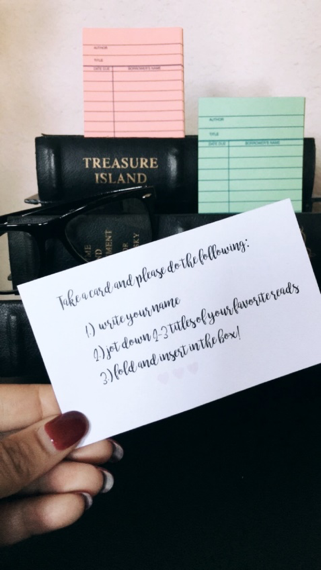 AUTHOR
TITLE
DATE DUE BORROWER'S NAME
AUTHOR
TITLE
DATE DUE BORROWER'S NAME
TREASURE
ISLAND
Take a card and please do the following:
1) write your name
2) jot down 2-3 titles of your favorite reads
3) fold and insert in the box!